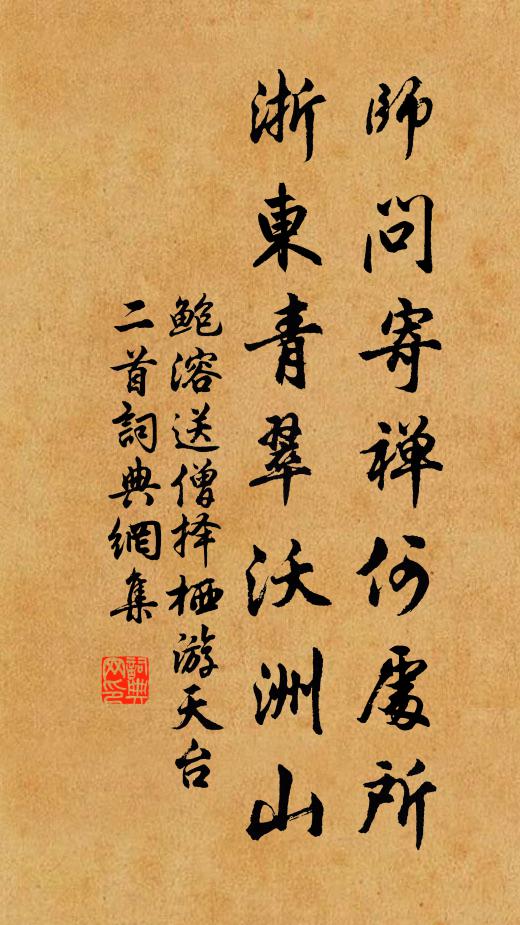 師問寄禅何處所
浙東青翠沃洲山
鲍溶送僧择栖游天台
二首詞典網集
詞典网印